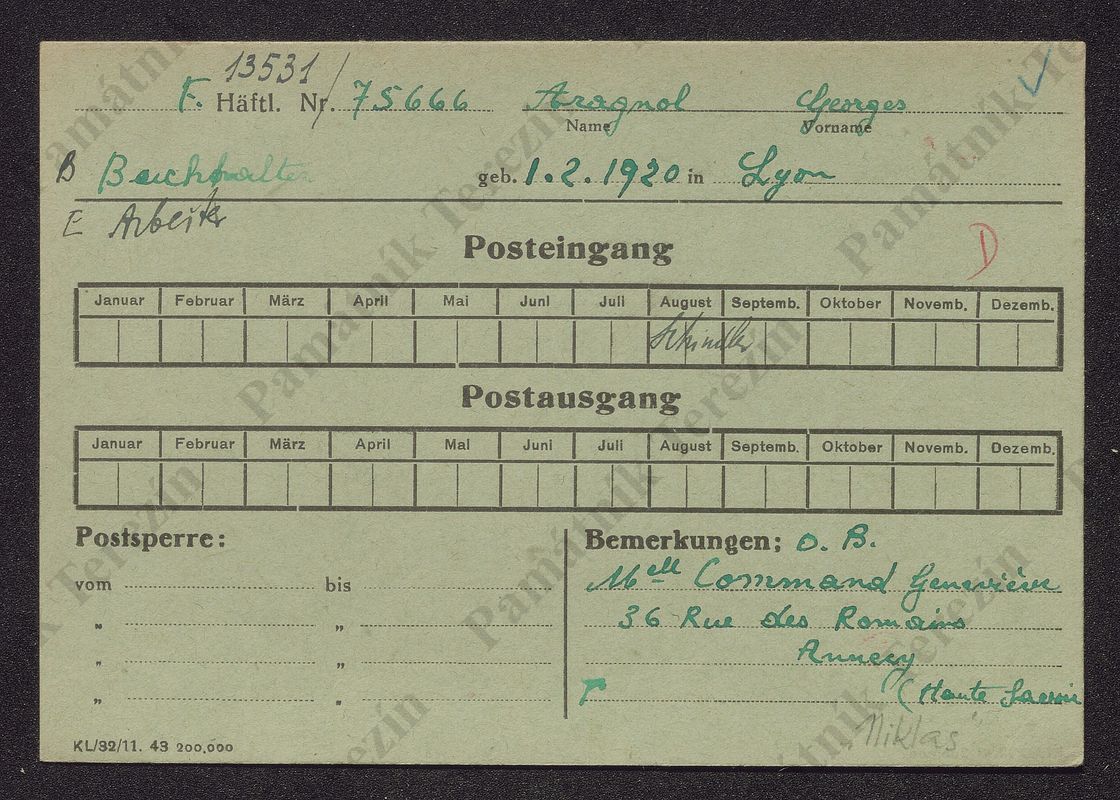 13531
F. Häftl. Nr. 75666 Aragnol Georges
Name Vorname
B geb. 1.2.1920 in Lyon
E Arbeiter
Posteingang D
Januar Februar März April Mai Juni Juli August Septemb. Oktober Novemb. Dezemb.
Schindler
Postausgang
Januar Februar März April Mai Juni Juli August Septemb. Oktober Novemb. Dezemb.
Postsperre: Bemerkungen: O. B.
vom bis Melle Command Geneviève
" " 36 Rue des Romains
" " Annecy
" " (Haute Savoie
Niklas
KL/32/11. 43 200,000
Památník Terezín